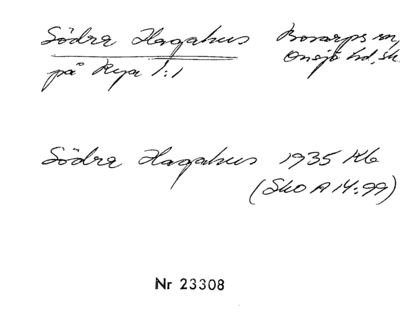 Södra Hagahus Bosarps sn,
på Rya 1:1 Onsjö hd, sk.
Södra Hagahus 1935 Kb
(SkO A 14:99)
Nr 23308